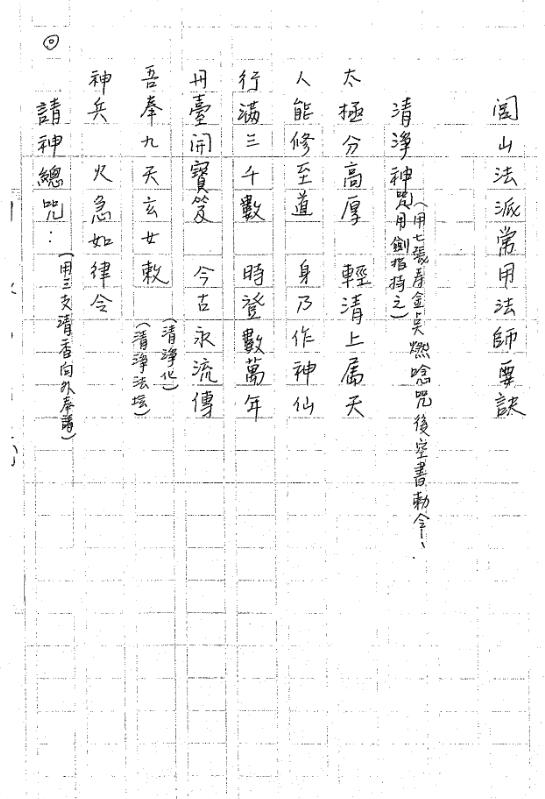 閭山法派常用法師要訣
清淨神咒(用七張壽金点燃唸咒後空書勅令、
用劍指持之)
太極分高厚 輕清上属天
人能修至道 身乃作神仙
行滿三千數 時登數萬年
丹臺開寶笈 今古永流傳
吾奉九天玄女敕 (清淨化)
(清淨法坛)
神兵 火急如律令
請神總咒:(用三支清香向外奉請)
◎